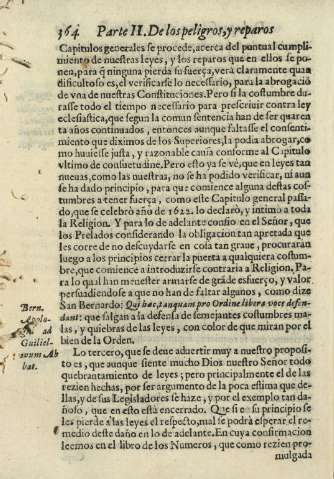 364 Parte II. De los peligros, y reparos
Capitulos generales se procede, acerca del puntual cumpli-
miento de nuestras leyes, y los reparos que en ellos se po-
nen, para q̃ ninguna pierda su fuerça, verà claramente quan
dificultoso es, el verificarse lo necessario, para la abrogaciõ
de vna de nuestras Constituciones. Pero si la costumbre du-
rasse todo el tiempo necessario para prescriuir contra ley
eclesiastica, que segun la comun sentencia han de ser quaren
ta años continuados, entonces aunque faltasse el consenti-
miento que diximos de los Superiores, la podia abrogar, co
mo huuiesse justa, y razonable causa conforme al Capitulo
vltimo de consuetudine. Pero esto ya se vè, que en leyes tan
nueuas, como las nuestras, no se ha podido verificar, ni aun
se ha dado principio, para que comience alguna destas cos-
tumbres a tener fuerça, como este Capitulo general passa-
do, que se celebrò año de 1622. lo declarò, y intimò a toda
la Religion. Y para lo de adelante confio en el Señor, que
los Prelados considerando la obligacion tan apretada que
les corre de no descuydarse en cosa tan graue, procuraràn
luego a los principios cerrar la puerta a qualquiera costum-
bre, que comience a introduzirse contraria a Religion. Pa-
ra lo qual han menester armarse de grãde esfuerço, y valor,
persuadiendose a que no han de faltar algunos, como dize
San Bernardo: Qui hac, tanquam pro Ordine libera voce defen-
dant: que salgan a la defensa de semejantes costumbres ma-
las, y quiebras de las leyes, con color de que miran por el
bien de la Orden.
Bern.
Apolo.
ad
Guiliel-
mum Ab
bat.
Lo tercero, que se deue aduertir muy a nuestro proposi-
to es, que aunque siente mucho Dios nuestro Señor todo
quebrantamiento de leyes; pero principalmente el de las
rezien hechas, por ser argumento de la poca estima que de-
llas, y de sus Legisladores se haze, y por el exemplo tan da-
ñoso, que en esto està encerrado. Que si e su principio se
les pierde a las leyes el respeto, mal se podrà esperar el ro-
medio deste daño en lo de adelante. En cuya confirmacion
leemos en el libro de los Numeros, que como rezien pro-
mulgada